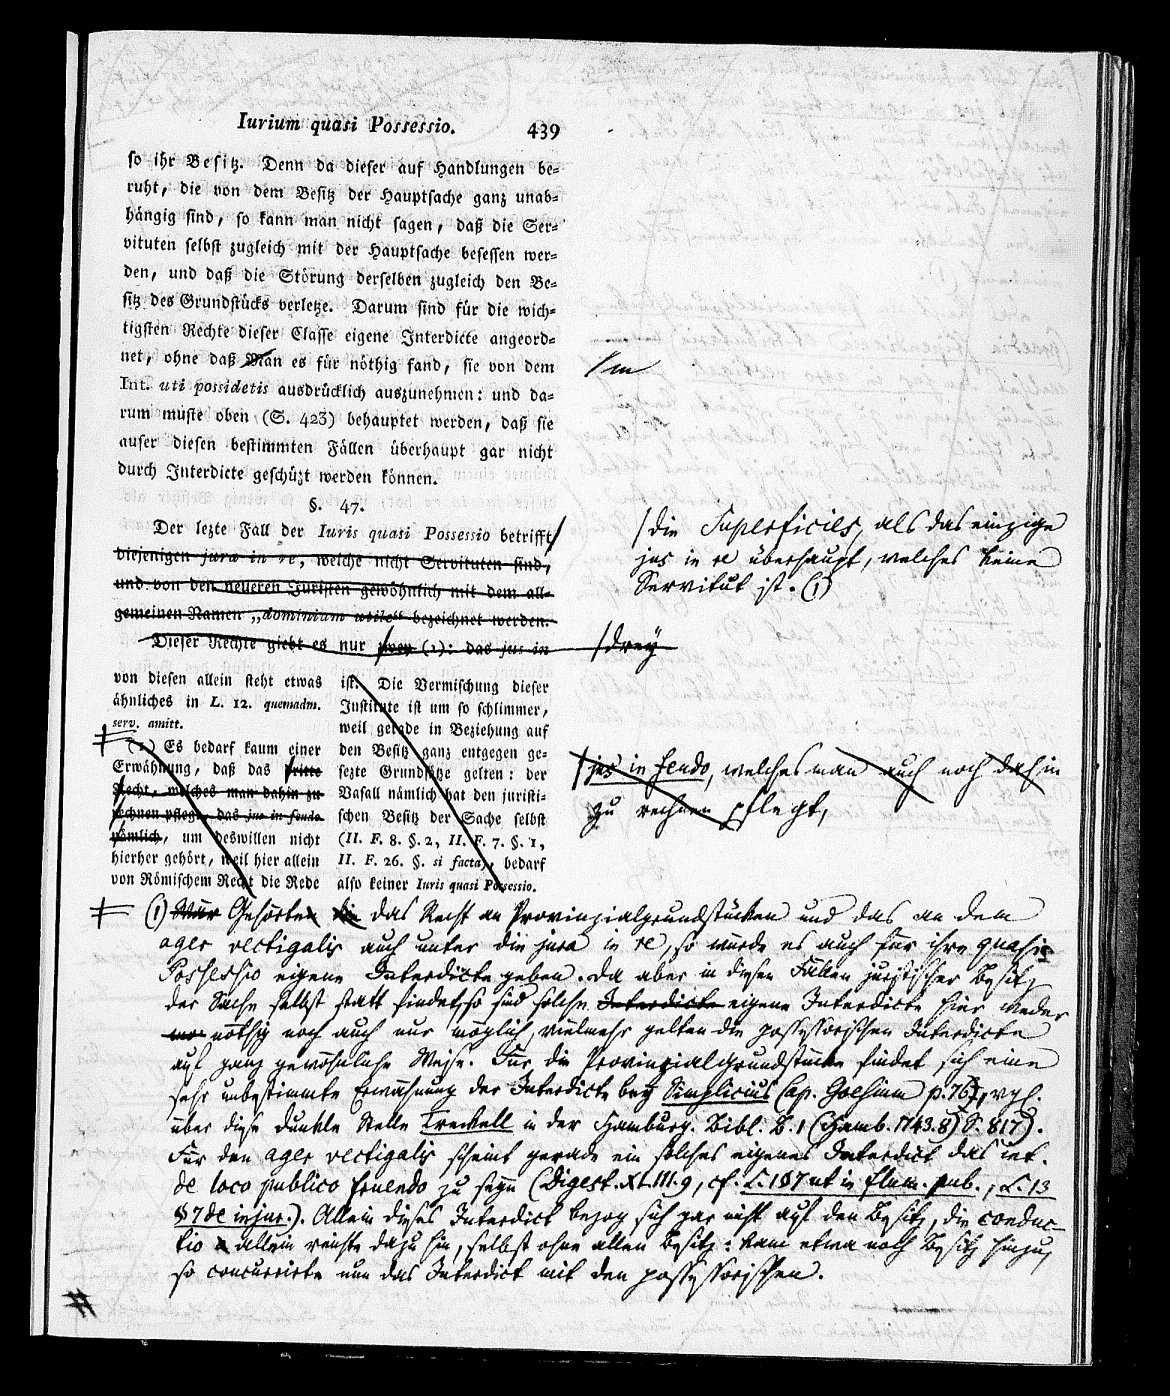 Iurium quasi Possessio. 439
so ihr Besitz. Denn da dieser auf Handlungen be-
ruht, die von dem Besitz der Hauptsache ganz unab-
hängig sind, so kann man nicht sagen, daß die Ser-
vituten selbst zugleich mit der Hauptsache besessen wer-
den, und daß die Störung derselben zugleich den Be-
sitz des Grundstücks verletze. Darum sind für die wich-
tigsten Rechte dieser Classe eigene Interdicte angeord-
net, ohne daß Man es für nöthig fand, sie von dem
/m
Int. uti possidetis ausdrücklich auszunehmen: und da-
rum muste oben (S. 423) behauptet werden, daß sie
auser diesen bestimmten Fällen überhaupt gar nicht
durch Interdicte geschüzt werden können.
§. 47.
Der lezte Fall der Iuris quasi Possessio betrifft/
diejenigen jura in re, welche nicht Servituten sind,
und von den neueren Juristen gewöhnlich mit dem all-
gemeinen Namen „dominium utile“ bezeichnet werden.
Dieser Rechte giebt es nur zwey (1): das jus in
/die Superficies, als das einzige
jus in re überhaupt, welches keine
Servitut ist. (1)
/drey
von diesen allein steht etwas
ähnliches in L. 12. quemadm.
serv. amitt.
(1) Es bedarf kaum einer
Erwähnung, daß das dritte
Recht, welches man dahin zu
rechnen pflegt, das jus in feudo
nämlich, um deswillen nicht
hierher gehört, weil hier allein
von Römischem Recht die Rede
ist. Die Vermischung dieser
Institute ist um so schlimmer,
weil gerade in Beziehung auf
den Besitz ganz entgegen ge-
sezte Grundsätze gelten: der
Vasall nämlich hat den juristi-
schen Besitz der Sache selbst
(II. F. 8. §. 2, II. F. 7. §. 1,
II. F. 26. §. si facta), bedarf
also keiner Iuris quasi Possessio.
/jus in feudo, welches man auch noch dahin
zu rechnen pflegt,
(1) Nur Gehörten die das Recht an Provinzialgrundstücken und das an dem
ager vectigalis auch unter die jura in re, so wurde es auch für ihre quasi
Possessio eigene Interdicte geben. Da aber in diesen Fällen juristischer Besitz
der Sache selbst statt findet, so sind solche Interdicte eigene Interdicte hier weder
nöthig noch auch nur möglich, vielmehr gelten die possessorischen Interdicte
auf ganz gewöhnliche Weise. Für die Provinzialgrundstücke findet sich eine
sehr unbestimmte Erwähnung der Interdicte bey Simplicius ap. Goesium p. 76, vgl.
über diese dunkle Stelle Trekell in der Hamburg. Bibl. B. 1 (Hamb. 1743. 8) S. 817).
Für den ager vectigalis scheint gerade ein solches eigenes Interdict das int.
de loco publico fruendo zu seyn (Digest. XLIII. 9, cf. L. 1 §7 ut in flum. pub., L. 13
§ 7 de injur.). Allein dieses Interdict bezog sich gar nicht auf den Besitz, die conduc-
tio allein reichte dazu hin, selbst ohne allen Besitz: kam etwa noch Besitz hinzu,
so concurrirte nun das Interdict mit den possessorischen.